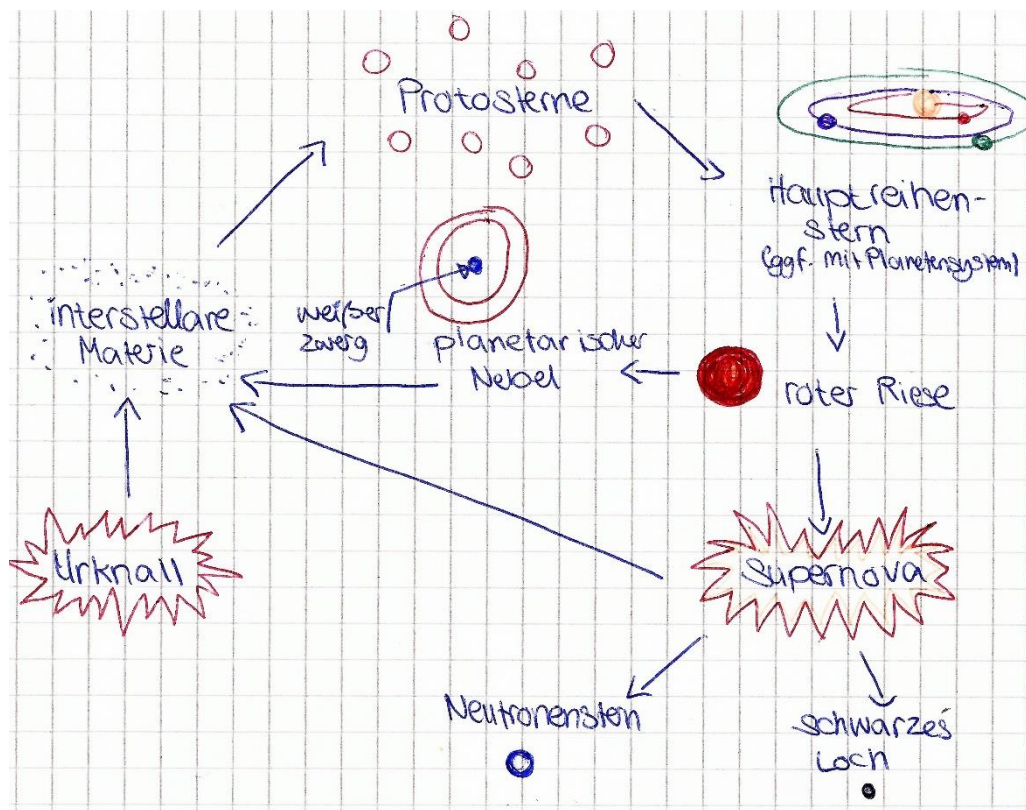 Protosterne
Hauptreihen-
stern
(ggf. mit Planetensystem)
interstellare
Materie
weißer
zwerg
planetarischer
Nebel
roter Riese
Urknall
Supernova
Neutronenstern
schwarzes
Loch